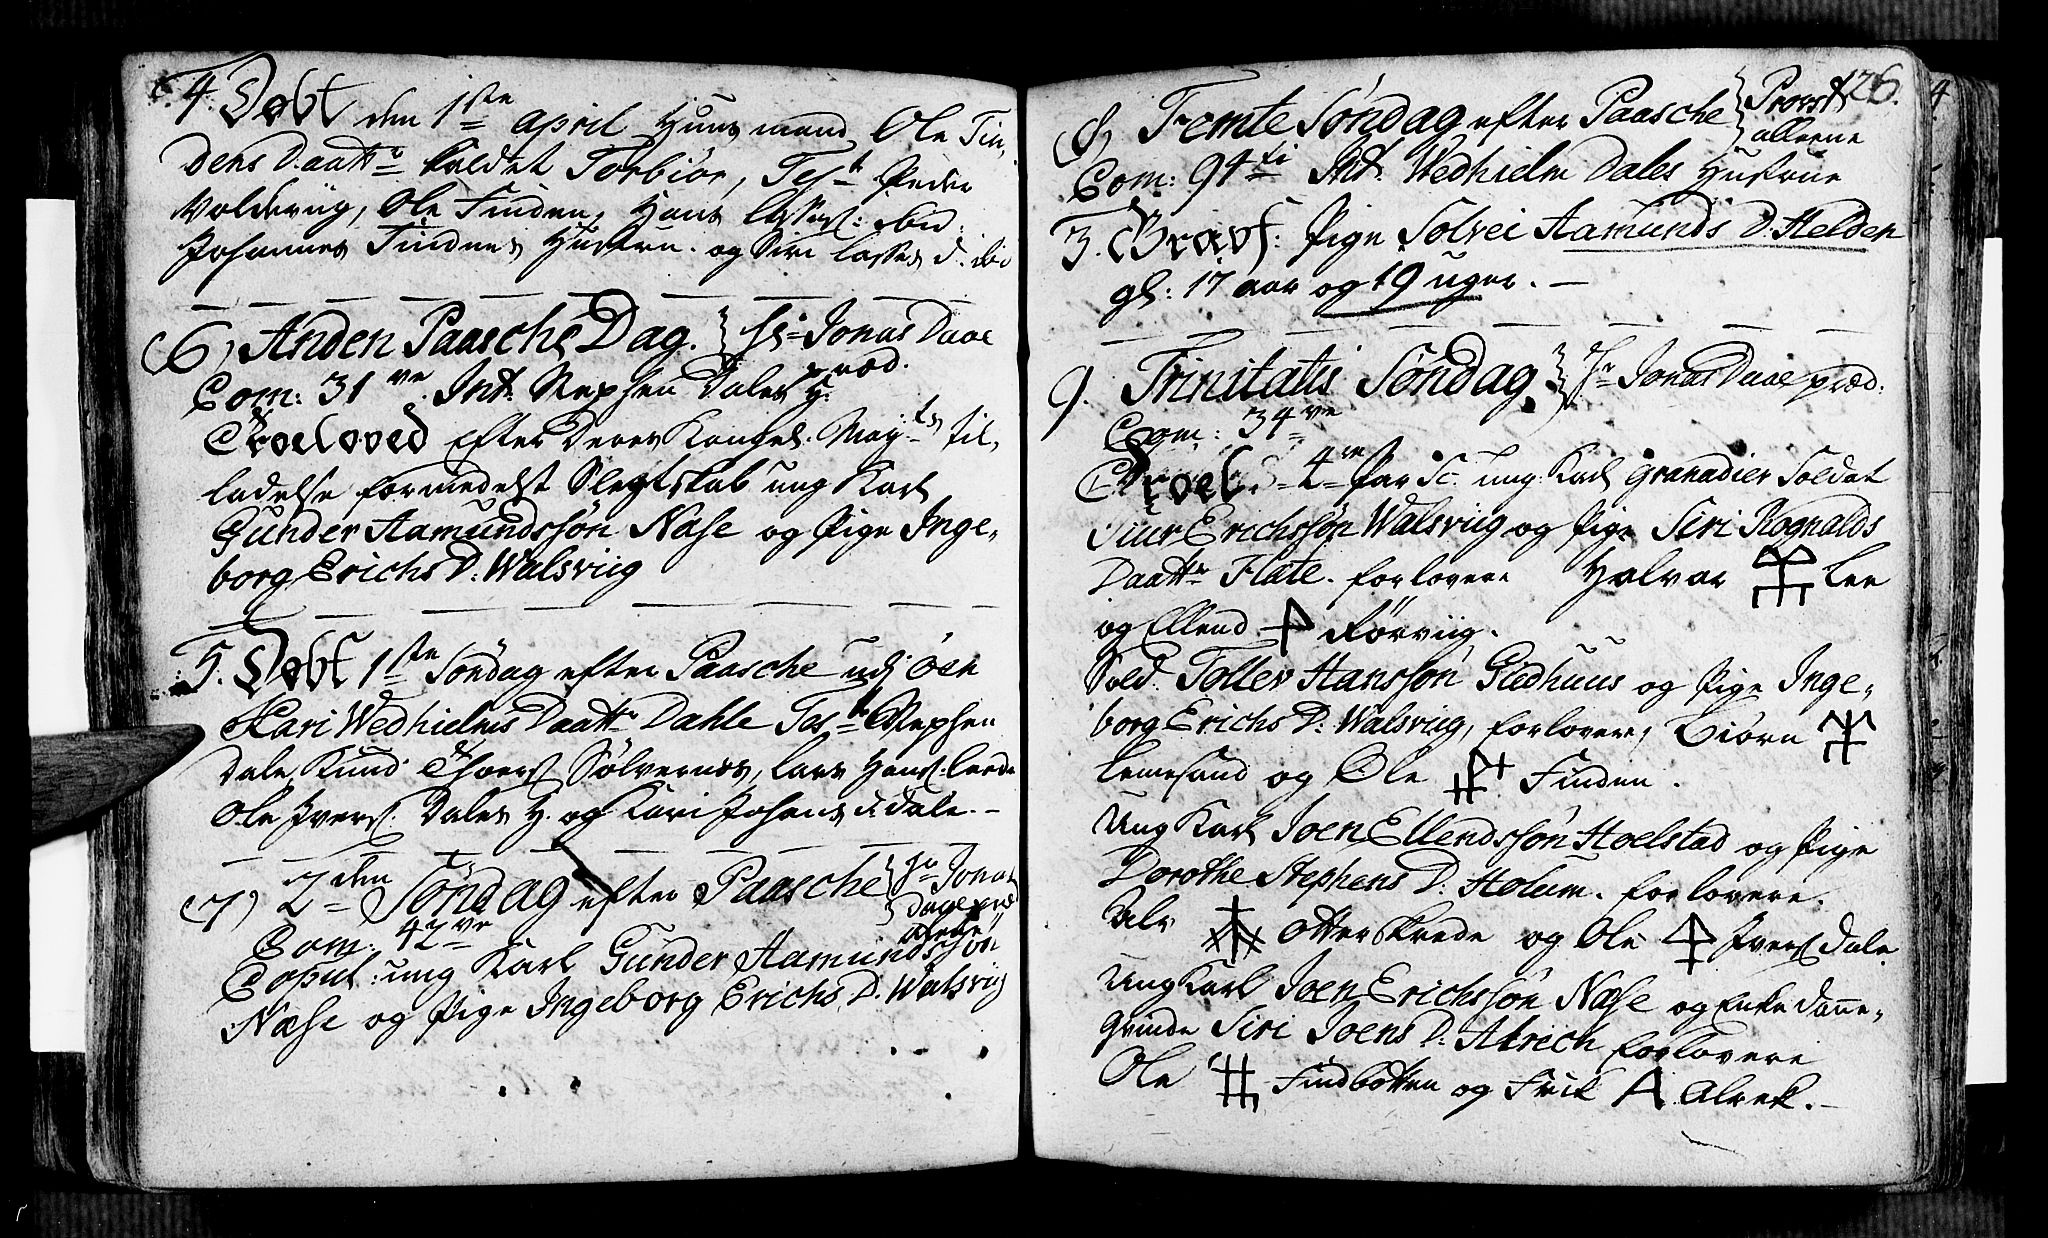 4. Døbt den 1ste april Huus mand Ole Fin,
dens Daattr kaldet Torbiør, Test. Peder
Voldeviig, Ole Finden, Hans Lasses: ibid:
Johannes Findnes Hustru. og Siri Lasses d. ibid
(6) Anden Paasche Dag. Hr Jonas Daae
præd.
Com: 31ve. Int. Stephen Dales H.
Troeloved efter Deres Kongel. Mayts til,
ladelse formedelst Slegtskab ung Karl
Gunder Aamundssøn Næse og Pige Inge-
borg Erichs D: Walsviig
5. Døbt 1ste Søndag efter Paasche udj Øen
Kari Wedhielms Daattr Dahle Test. Stephen
Dale, Knud Thoers. Sølvernes, Lars Hans. Leede
Ole Ivers. Dales H. og Kari Johans d. Dale. -
(7) 2den Søndag efter Paasche Hr Jonas
Daae præd
Com: 42ve
Copul: ung Karl Gunder Aamundssøn
Næse og Pige Ingeborg Erichs D. Walsviig
126.
(8) Femte Søndag efter Paasche Provst
alleene
Com: 94ti Int. Wedhielm Dales Hustrue
3. Begravf: Pige Solvei Aamunds D. Helden
gl: 17 aar og 19 uger. -
9. Trinitatis Søndag. Hr Jonas Daae præd:
Com: 34ve
Troel. 4re Par Sc. ung Karl Granadier Soldat
Siur Erichssøn Walsviig og Pige Siri Rognalds
Daattr Flate. forlovere Halvar Lee
og Ellend Førviig.
Sold. Tollev Hanssøn Giedhuus og Pige Inge-
borg Erichs D: Walsviig, forlovere, Biørn
Lemesand og Ole Finden.
Ung Karl Joen Ellendssøn Hoelstad og Pige
Dorothe Stephens D. Holum. forlovere.
Otterskrede og Ole Ivers Dale
Ung Karl Joen Erichssøn Næse og Enke Danne-
Qvinde Siri Joens D. Alrech forlovere
Ole Findbotten og Erik Alrek. -